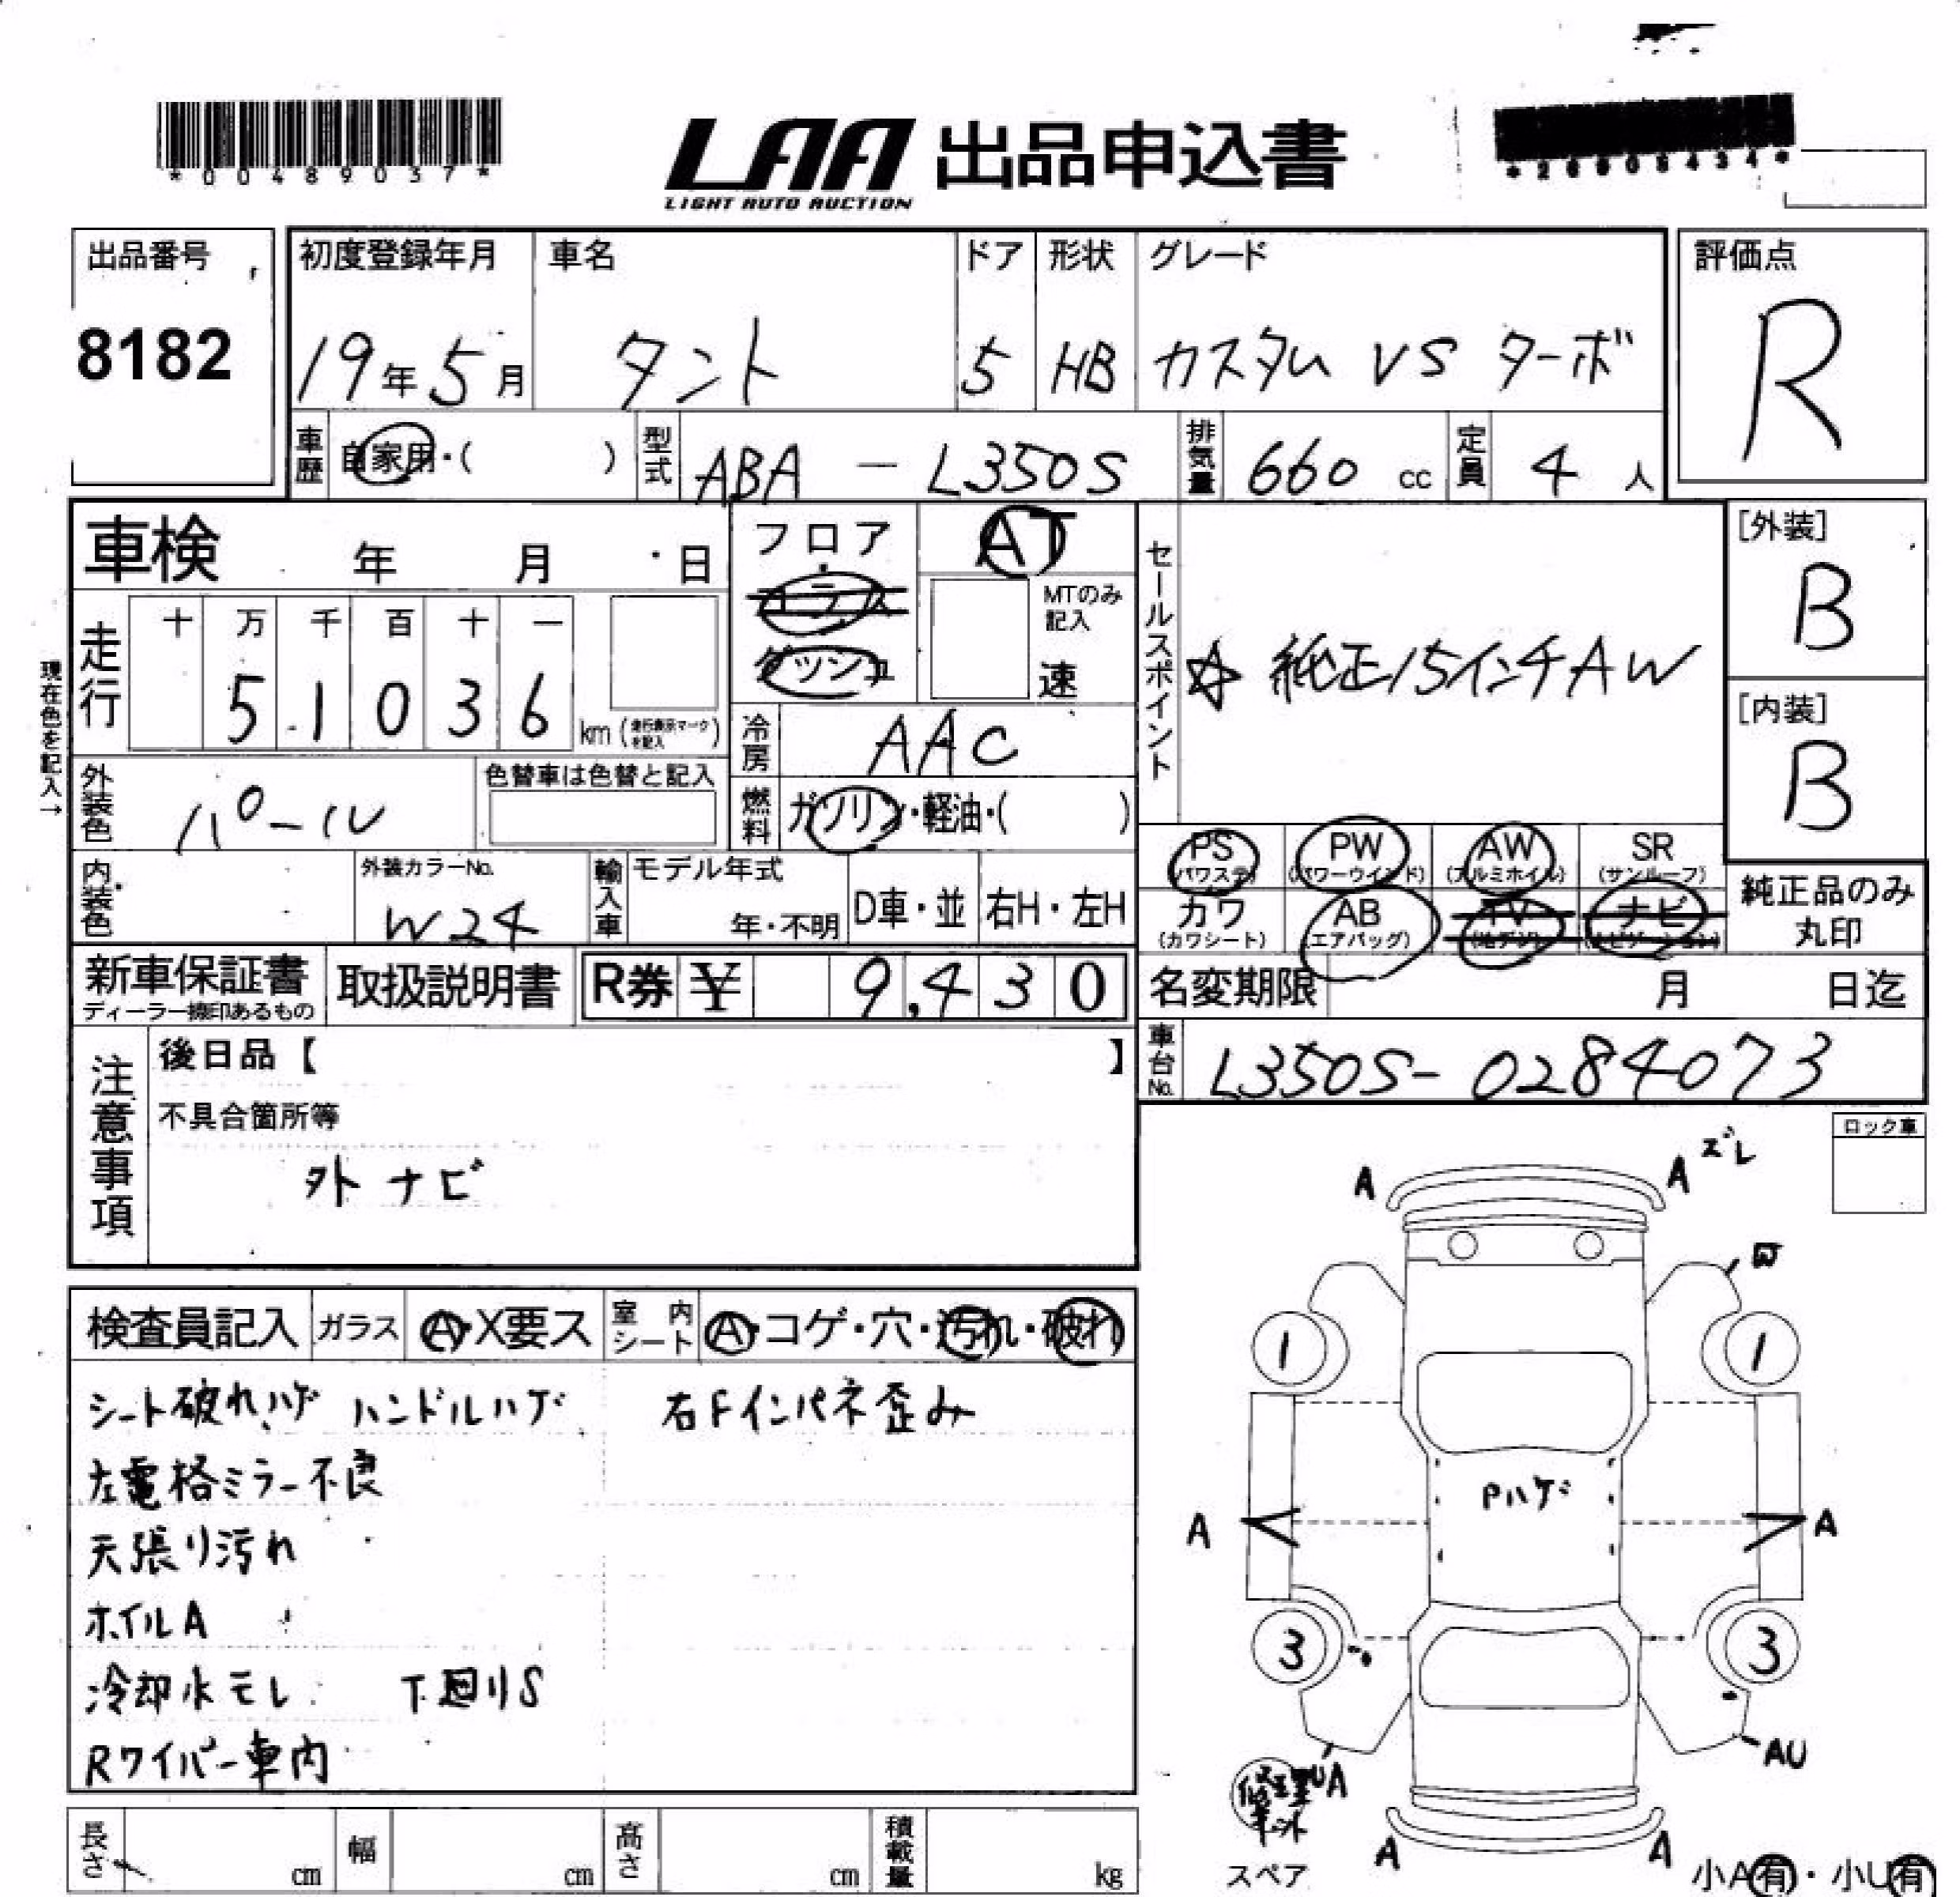 *00489037*
LAA 出品申込書
LIGHT AUTO AUCTION
出品番号 初度登録年月 車名 ドア 形状 グレード 評価点
8182 19年5月 タント 5 HB カスタム VS ターボ R
車歴 自家用・( ) 型式 ABA - L350S 排気量 660 cc 定員 4 人
車検 年 月 日 フロア AT セールスポイント [外装]
B
コラム MTのみ記入
十 万 千 百 十 一
走行 5 1 0 3 6 km (走行表示マークを記入) ダッシュ 速 ☆ 純正15インチAW
現在色を記入→
[内装]
B
冷房 AAC
外装色 パール 色替車は色替と記入 燃料 ガソリン・軽油・( )
PS PW AW SR
(パワステ) (パワーウインド) (アルミホイル) (サンルーフ)
内装色 外装カラーNo. W24 輸入車 モデル年式 年・不明 D車・並 右H・左H
カワ AB TV ナビ
(カワシート) (エアバッグ) (地デジ) (ナビゲーション)
純正品のみ
丸印
新車保証書 取扱説明書 R券 ¥ 9,430 名変期限 月 日迄
ディーラー捺印あるもの
車台No. L350S-0284073
注意事項 後日品【 】
不具合箇所等
外 ナビ
ロック車
A A ズレ
W
検査員記入 ガラス A・X要ス 室内シート A・コゲ・穴・汚れ・破れ
1 1
シート破れハゲ ハンドルハゲ 右Fインパネ歪み
左電格ミラー不良
Pハゲ
天張り汚れ
A A
ホイルA
3 3
冷却水モレ 下廻りS
Rワイパー車内
UA AU
修理キット
A A
長さ cm 幅 cm 高さ cm 積載量 kg
スペア 小A有・小U有